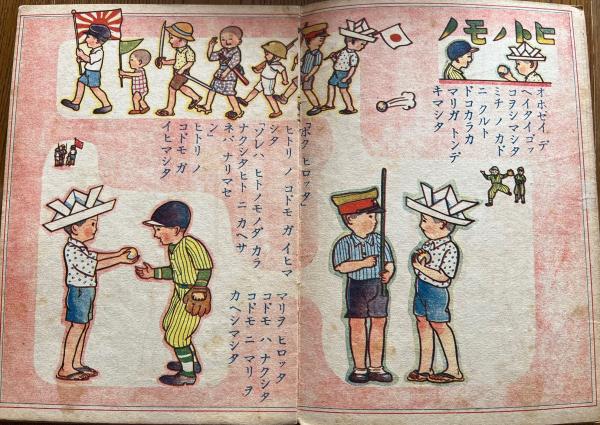 ヒトノモノ
オホゼイ デ
ヘイタイゴッ
コヲシマシタ
ミチ ノ カド
ニ クルト
ドコカラカ
マリガ トンデ
キマシタ
「ボク ヒロッタ」
ヒトリ ノ コドモ ガ イヒマ
シタ
「ソレハ ヒトノモノダ カラ
ナクシタヒト ニ カヘサ
ネバ ナリマセ
ン」
ヒトリ ノ
コドモ ガ
イヒマシタ
マリヲ ヒロッタ
コドモ ハ ナクシタ
コドモ ニ マリ ヲ
カヘシマシタ